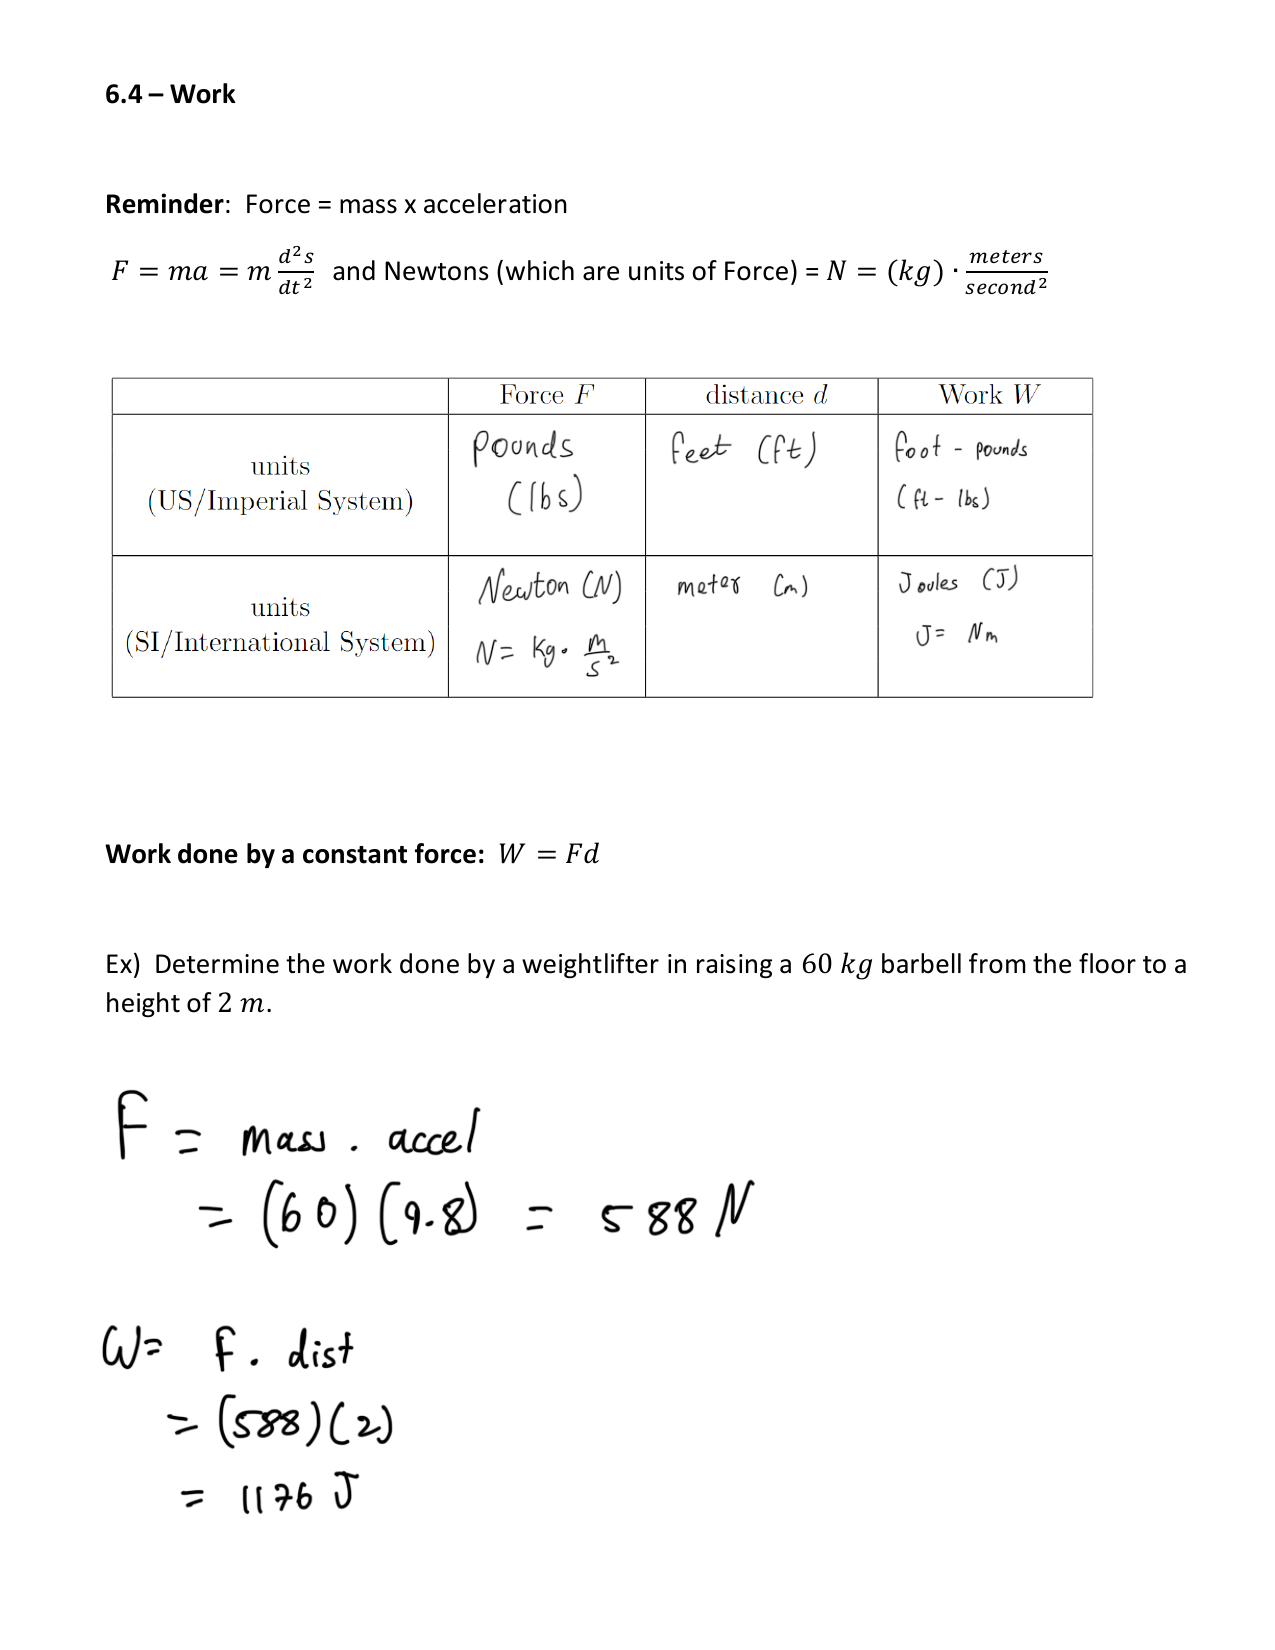 6.4 – Work
Reminder: Force = mass x acceleration
F = ma = m d²s/dt² and Newtons (which are units of Force) = N = (kg) · meters/second²
Force F distance d Work W
units
(US/Imperial System)
Pounds
(lbs)
feet (ft)
foot - pounds
(ft - lbs)
units
(SI/International System)
Newton (N)
N = kg · m/s²
meter (m)
Joules (J)
J = Nm
Work done by a constant force: W = Fd
Ex) Determine the work done by a weightlifter in raising a 60 kg barbell from the floor to a
height of 2 m.
F = mass . accel
= (60) (9.8) = 588 N
W = F . dist
= (588) (2)
= 1176 J